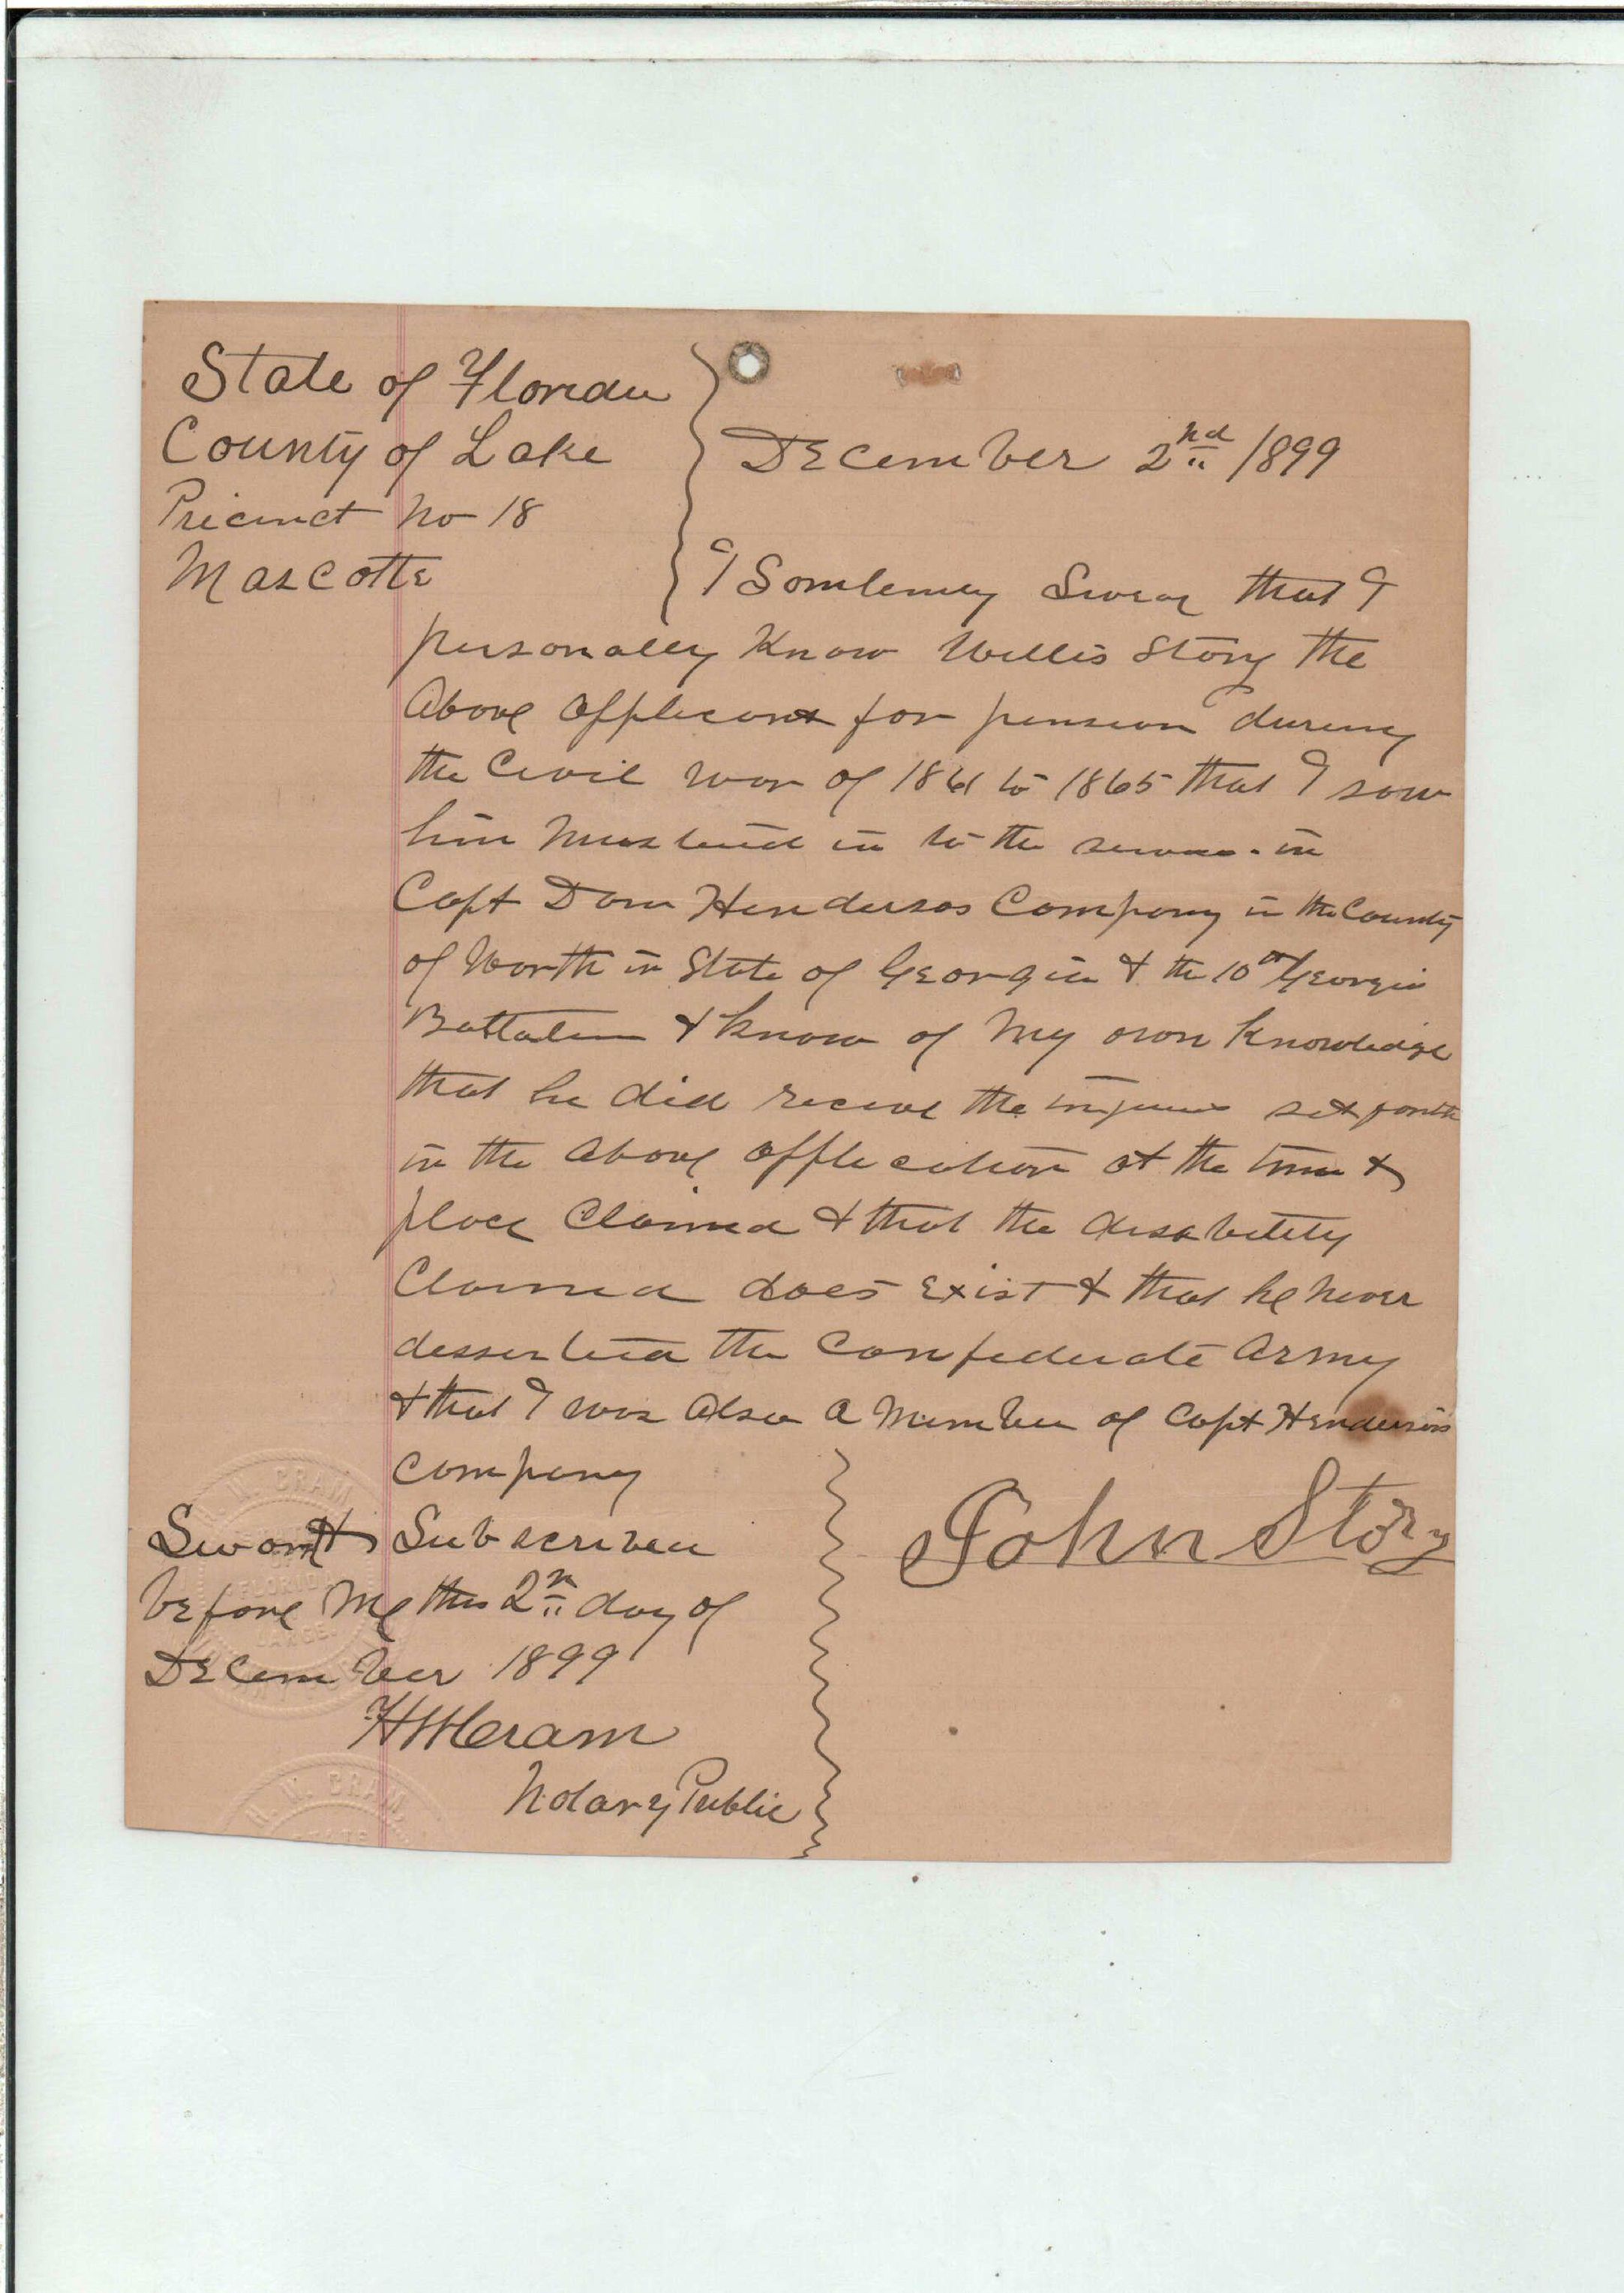 State of Florida
County of Lake
Precinct No 18
Mascotte
December 2nd 1899
I Somlemly Swear that I
personally Know Willis Story the
Above applicant for pension during
the Civil war of 1861 to 1865 that I saw
him Mustered in to the service in
Capt Dan Hendersos Company in the County
of Worth in State of Georgia & the 10th Georgia
Battalion & know of My own Knowledge
that he did receive the injuries set forth
in the above application at the time &
place Claimed & that the disability
Claimed does Exist & that he never
desserted the Confederate Army
& that I was Also a Member of Capt Henderson's
Company
Sworn & Subscribed
before Me this 2n day of
December 1899
H N Cram
Notary Public
John Story
H. N. CRAM
FLORIDA
LARGE.
H. N. CRAM